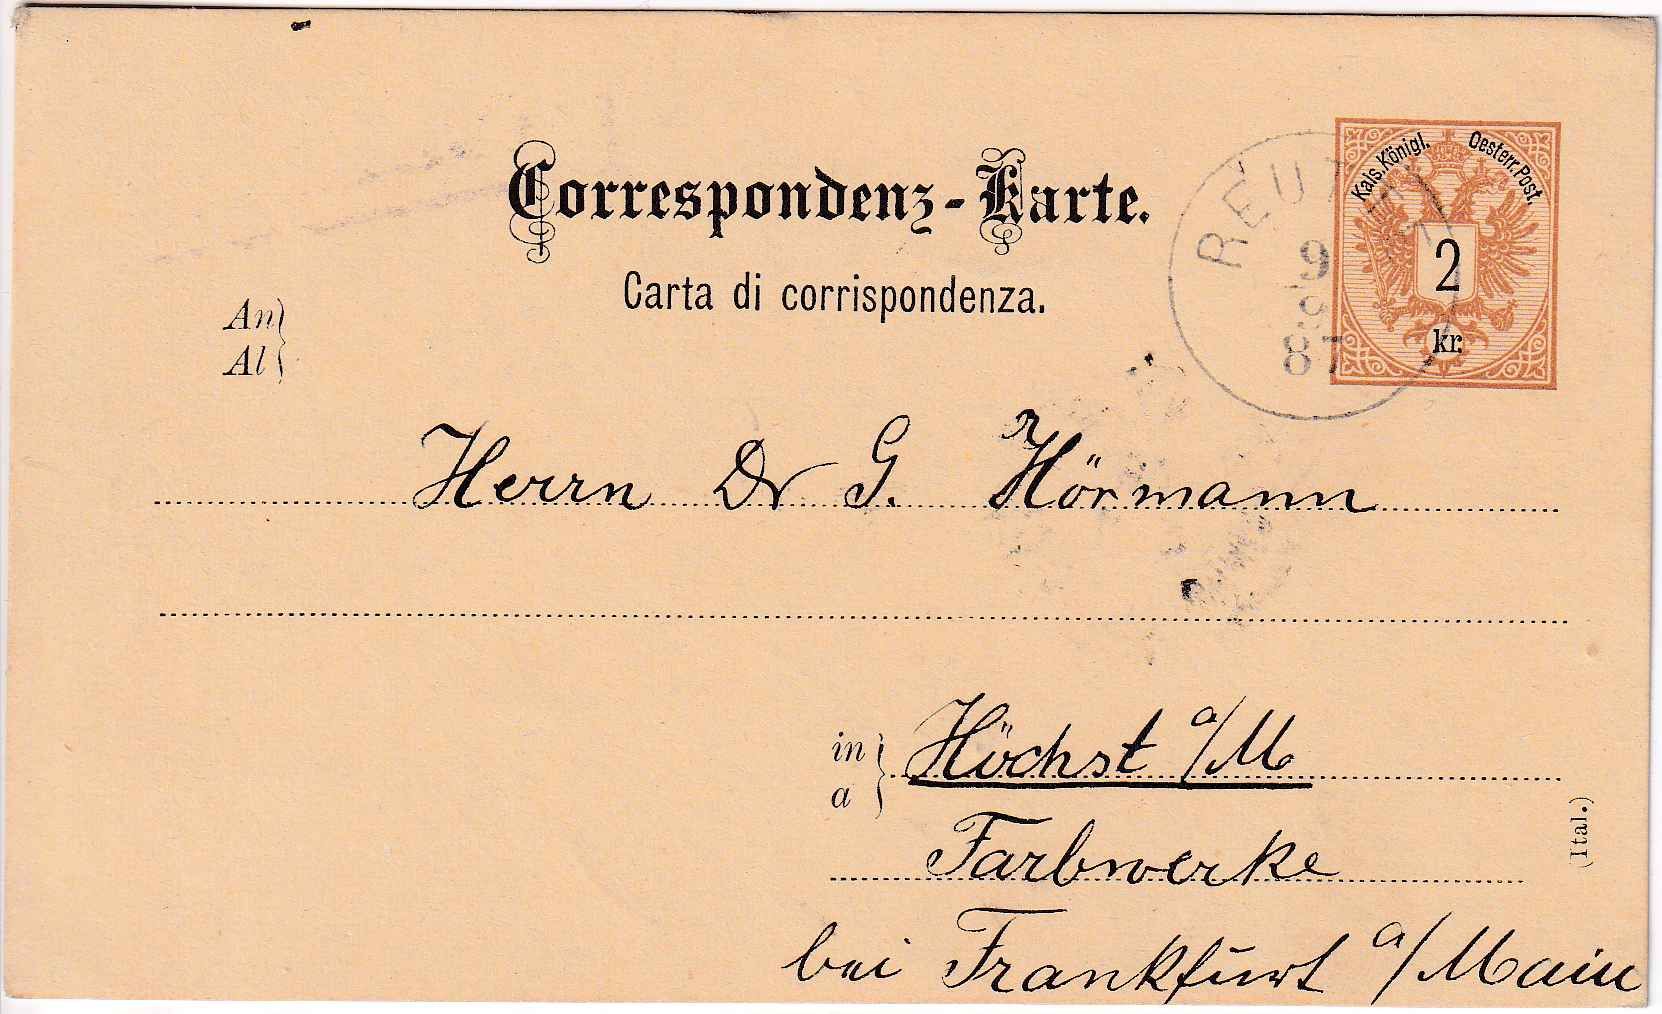 Correspondenz-Karte.
Carta di corrispondenza.
Kais. Königl. Oesterr. Post.
2
kr.
9
87
An
Al
Herrn Dr G. Hörmann
in
a
Höchst a/M
Farbwerke
bei Frankfurt a/Main
(Ital.)